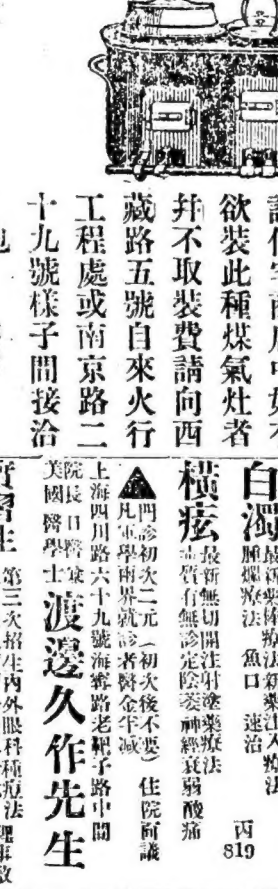 欲裝此種煤氣灶者
并不取裝費請向西
藏路五號自來火行
工程處或南京路二
十九號樣子間接洽
白濁
腫爛療法 魚口 速治
丙
819
橫痃
最新無切開注射塗藥療法
有無診定陰委神經衰弱酸痛
門診初次二元(初次後不要)住院面議
凡軍學兩界就診者醫金半減
上海四川路六十九號海寧路老靶子路中間
院長日醫兼
美國醫學士 渡邊久作先生
實習生
第三次招生內外眼科種痘法